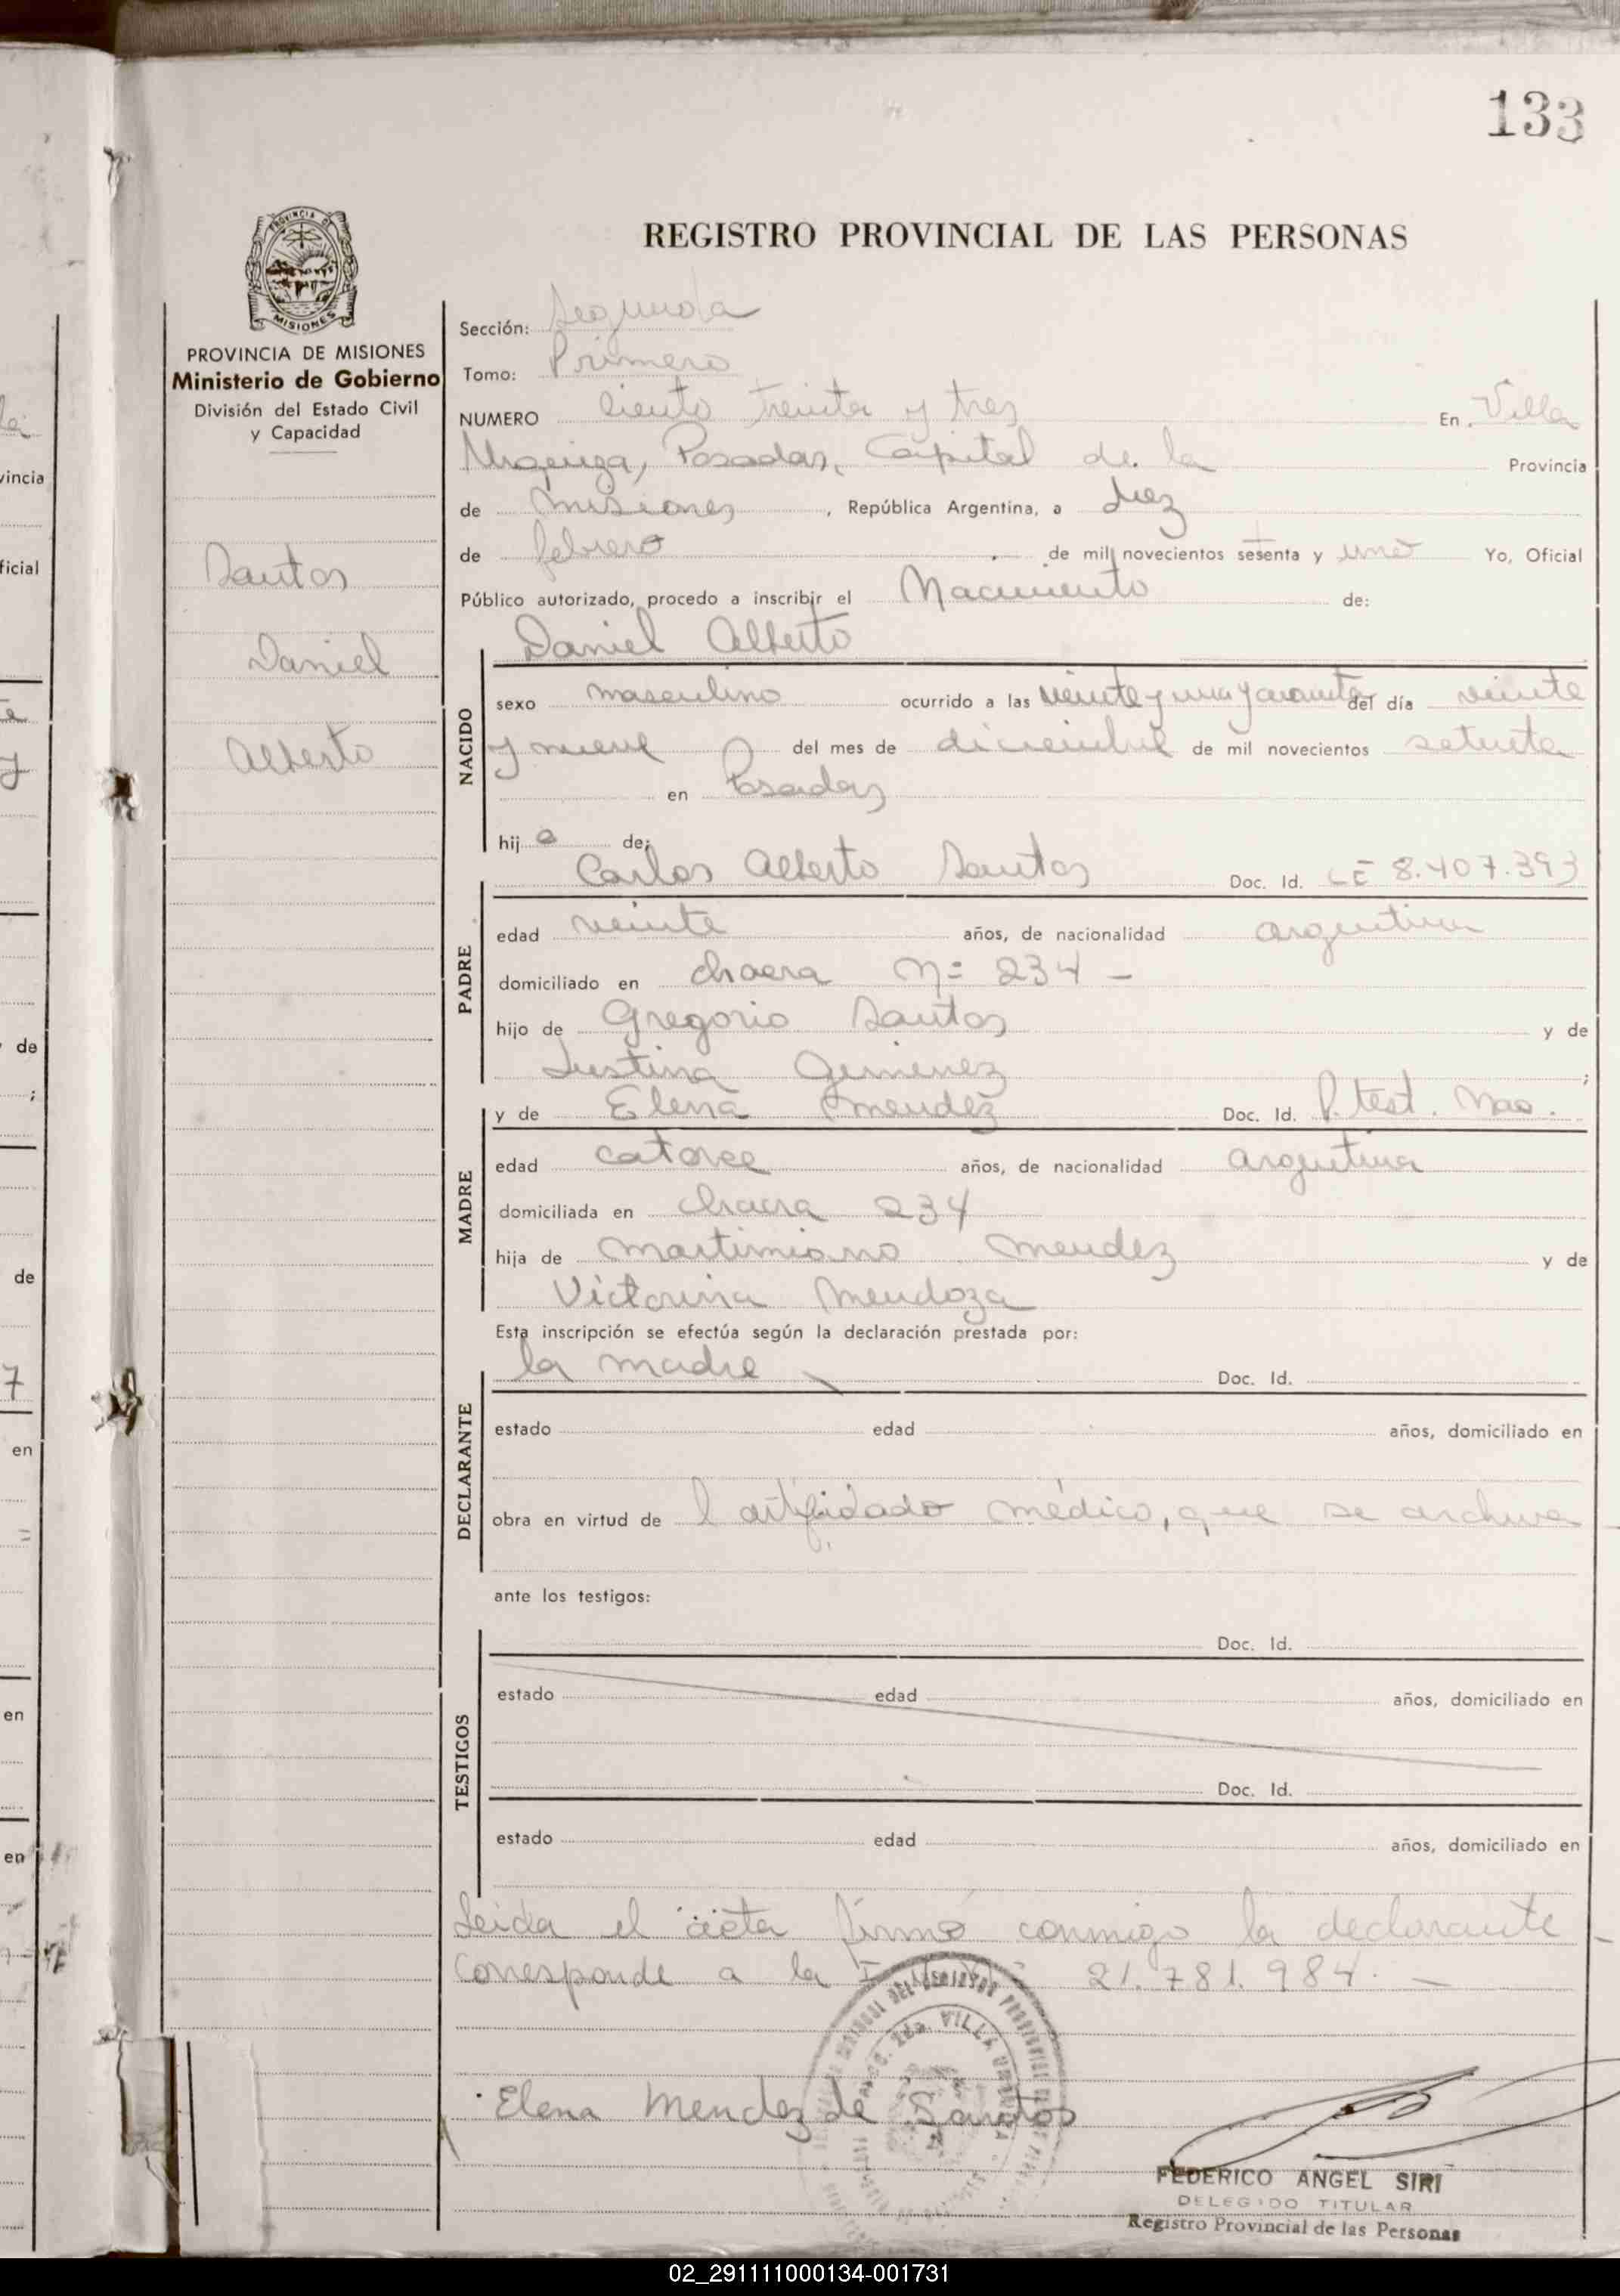 133
REGISTRO PROVINCIAL DE LAS PERSONAS
PROVINCIA DE
MISIONES
PROVINCIA DE MISIONES
Ministerio de Gobierno
División del Estado Civil
y Capacidad
Santos
Daniel
Alberto
Sección: Segunda
Tomo: Primero
NUMERO Ciento treinta y tres En Villa
Urquiza, Posadas, Capital de la Provincia
de Misiones, República Argentina, a diez
de febrero de mil novecientos setenta y uno Yo, Oficial
Público autorizado, procedo a inscribir el Nacimiento de:
Daniel Alberto
NACIDO
sexo masculino ocurrido a las veinte y una y cuarenta del día veinte
y nueve del mes de diciembre de mil novecientos setenta
en Posadas
hijo de:
PADRE
Carlos Alberto Santos Doc. Id. LE 8.407.393
edad veinte años, de nacionalidad argentina
domiciliado en chacra Nº 234 -
hijo de Gregorio Santos y de
Justina Gimenez ;
MADRE
y de Elena Mendez Doc. Id. P. test. Nac.
edad catorce años, de nacionalidad argentina
domiciliada en chacra 234
hija de Martimiano Mendez y de
Victorina Mendoza
Esta inscripción se efectúa según la declaración prestada por:
DECLARANTE
la madre Doc. Id.
estado edad años, domiciliado en
obra en virtud de médico, que se archiva
ante los testigos:
TESTIGOS
Doc. Id.
estado edad años, domiciliado en
Doc. Id.
estado edad años, domiciliado en
Leida el acta firmó conmigo la declarante -
Corresponde a la 21.781.984. -
Elena Mendez de Santos
FEDERICO ANGEL SIRI
DELEGADO TITULAR
Registro Provincial de las Personas
02_291111000134-001731